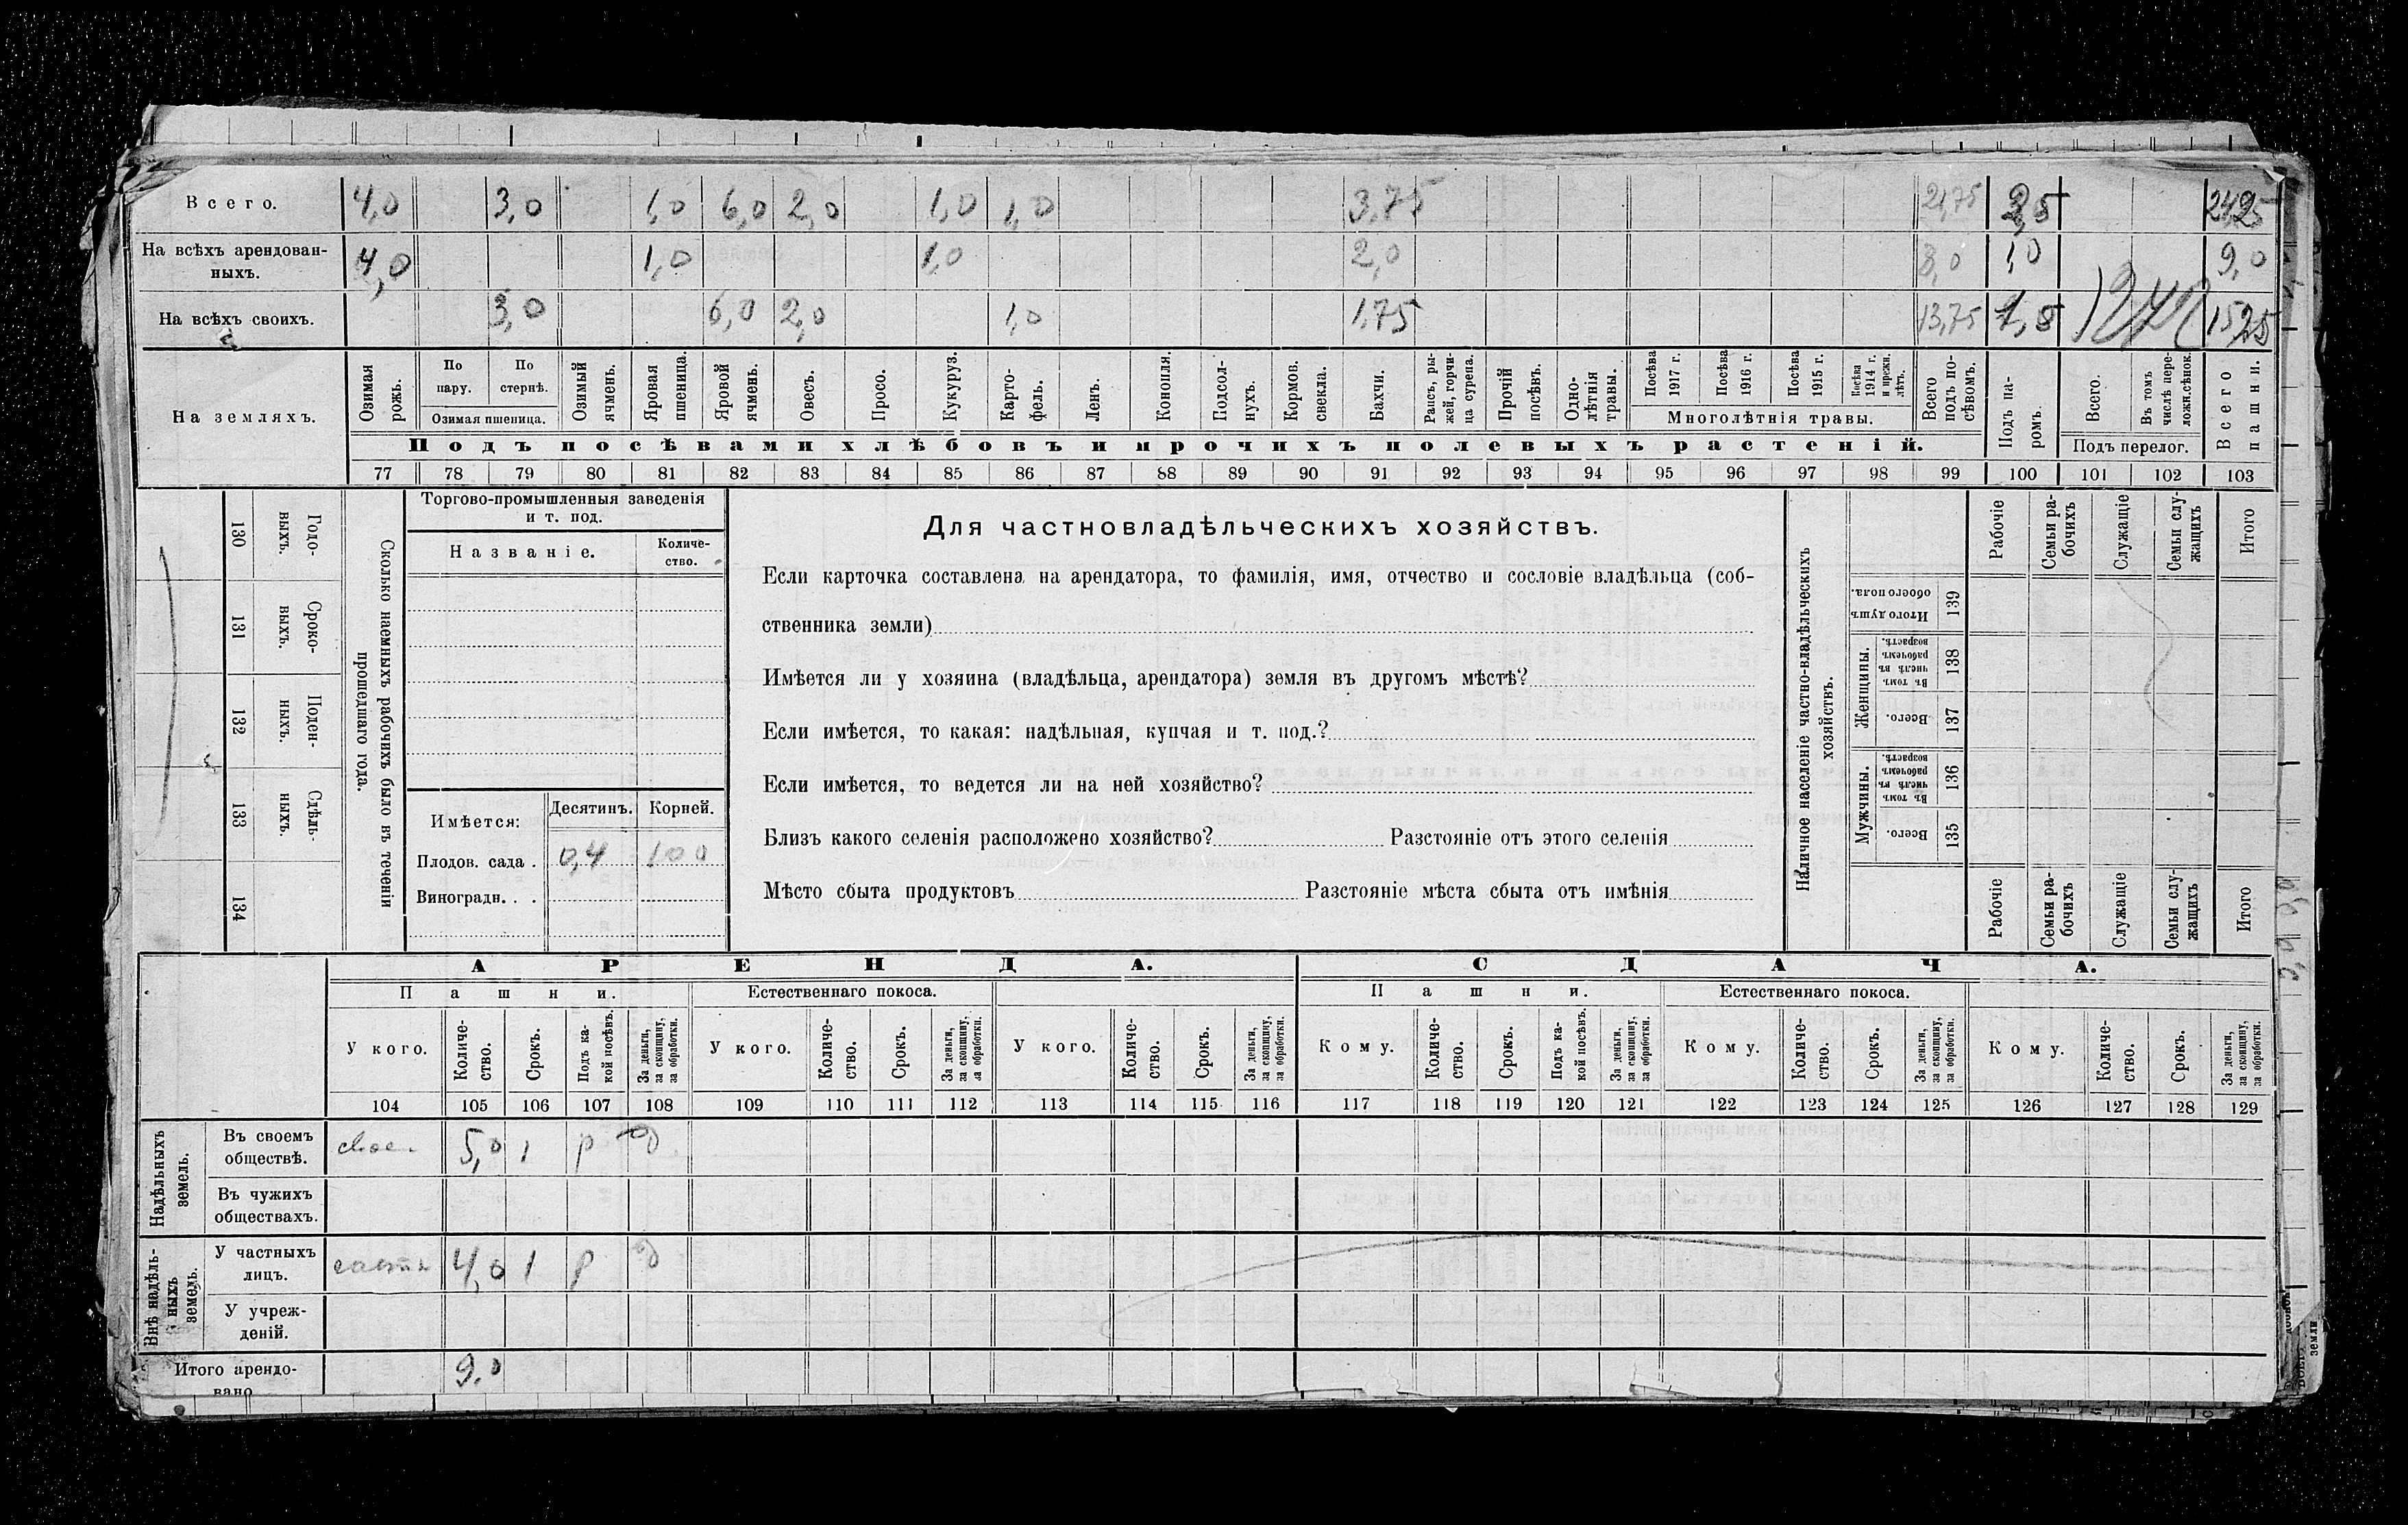 Всего. 4,0 3,0 1,0 6,0 2,0 1,0 1,0 3,75 21,75 2,5 24,25
На всѣхъ арендованныхъ. 4,0 1,0 1,0 2,0 8,0 1,0 9,0
На всѣхъ своихъ. 3,0 6,0 2,0 1,0 1,75 13,75 1,5 15,25
На земляхъ.
Озимая рожь.
По пару.
По стернѣ.
Озимая пшеница.
Озимый ячмень.
Яровая пшеница.
Яровой ячмень.
Овесъ.
Просо.
Кукуруз.
Картофель.
Ленъ.
Конопля.
Подсолнухъ.
Кормов. свекла.
Бахчи.
Рапсъ, рыжей, горчица сурепа.
Прочій посѣвъ.
Однолѣтнія травы.
Посѣва 1917 г.
Посѣва 1916 г.
Посѣва 1915 г.
Посѣва 1914 г. и прежн. лѣтъ.
Многолѣтнія травы.
Всего подъ посѣвомъ.
Подъ паромъ.
Всего.
Въ томъ числѣ переложн. сѣнок.
Подъ перелог.
Всего пашни.
Подъ посѣвами хлѣбовъ и прочихъ полевыхъ растеній.
77 78 79 80 81 82 83 84 85 86 87 88 89 90 91 92 93 94 95 96 97 98 99 100 101 102 103
130 Годовыхъ.
131 Сроковыхъ.
132 Поденныхъ.
133 Сдѣльныхъ.
134
Сколько наемныхъ рабочихъ было въ теченіи прошедшаго года.
Торгово-промышленныя заведенія
и т. под.
Названіе. Количество.
Имѣется: Десятинъ. Корней.
Плодов. сада . 0,4 100
Виноградн. . .
Для частновладѣльческихъ хозяйствъ.
Если карточка составлена на арендатора, то фамилія, имя, отчество и сословіе владѣльца (соб-
ственника земли)
Имѣется ли у хозяина (владѣльца, арендатора) земля въ другомъ мѣстѣ?
Если имѣется, то какая: надѣльная, купчая и т. под.?
Если имѣется, то ведется ли на ней хозяйство?
Близъ какого селенія расположено хозяйство? Разстояніе отъ этого селенія
Мѣсто сбыта продуктовъ Разстояніе мѣста сбыта отъ имѣнія
Наличное населеніе частно-владѣльческихъ хозяйствъ.
Рабочіе
Семьи рабочихъ
Служащіе
Семьи служащихъ
Итого
Итого душъ обоего пола. 139
Женщины.
Въ томъ числѣ въ рабочемъ возрастѣ. 138
Всего. 137
Мужчины.
Въ томъ числѣ въ рабочемъ возрастѣ. 136
Всего. 135
Рабочіе
Семьи рабочихъ
Служащіе
Семьи служащихъ
Итого
АРЕНДА. СДАЧА.
Пашни. Естественнаго покоса. Пашни. Естественнаго покоса.
У кого. Количество. Срокъ. Подъ какой посѣвъ. За деньги, за скопщину, за обработки.
У кого. Количество. Срокъ. За деньги, за скопщину, за обработки.
У кого. Количество. Срокъ. За деньги, за скопщину, за обработки.
Кому. Количество. Срокъ. Подъ какой посѣвъ. За деньги, за скопщину, за обработки.
Кому. Количество. Срокъ. За деньги, за скопщину, за обработки.
Кому. Количество. Срокъ. За деньги, за скопщину, за обработки.
104 105 106 107 108 109 110 111 112 113 114 115 116 117 118 119 120 121 122 123 124 125 126 127 128 129
Надѣльныхъ земель.
Въ своемъ обществѣ. 5,0 1 р д
Въ чужихъ обществахъ.
Внѣ надѣльныхъ земель.
У частныхъ лицъ. 4,0 1 р д
У учрежденій.
Итого арендовано 9,0